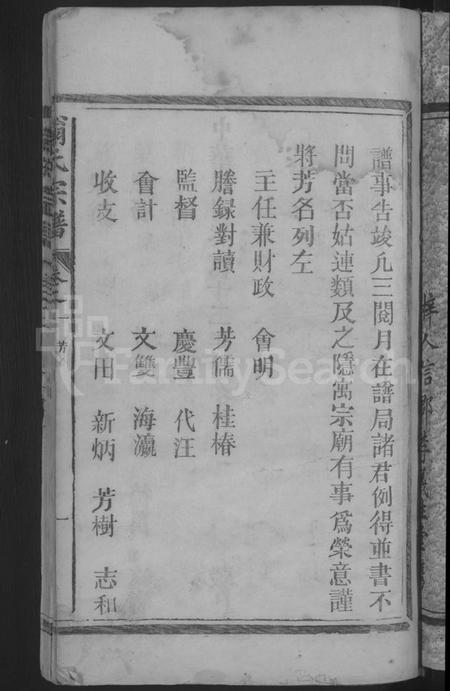 譜事告竣凢三閱月在譜局諸君例得並書不
問當否姑連類及之隱寓宗廟有事爲榮意謹
將芳名列左
主任兼財政　會明
謄録對讀　芳儒　桂椿
監督　慶豐　代汪
會計　文雙　海瀛
收支　文田　新炳　芳樹　志和
翁氏宗譜
芳
一
FamilySearch